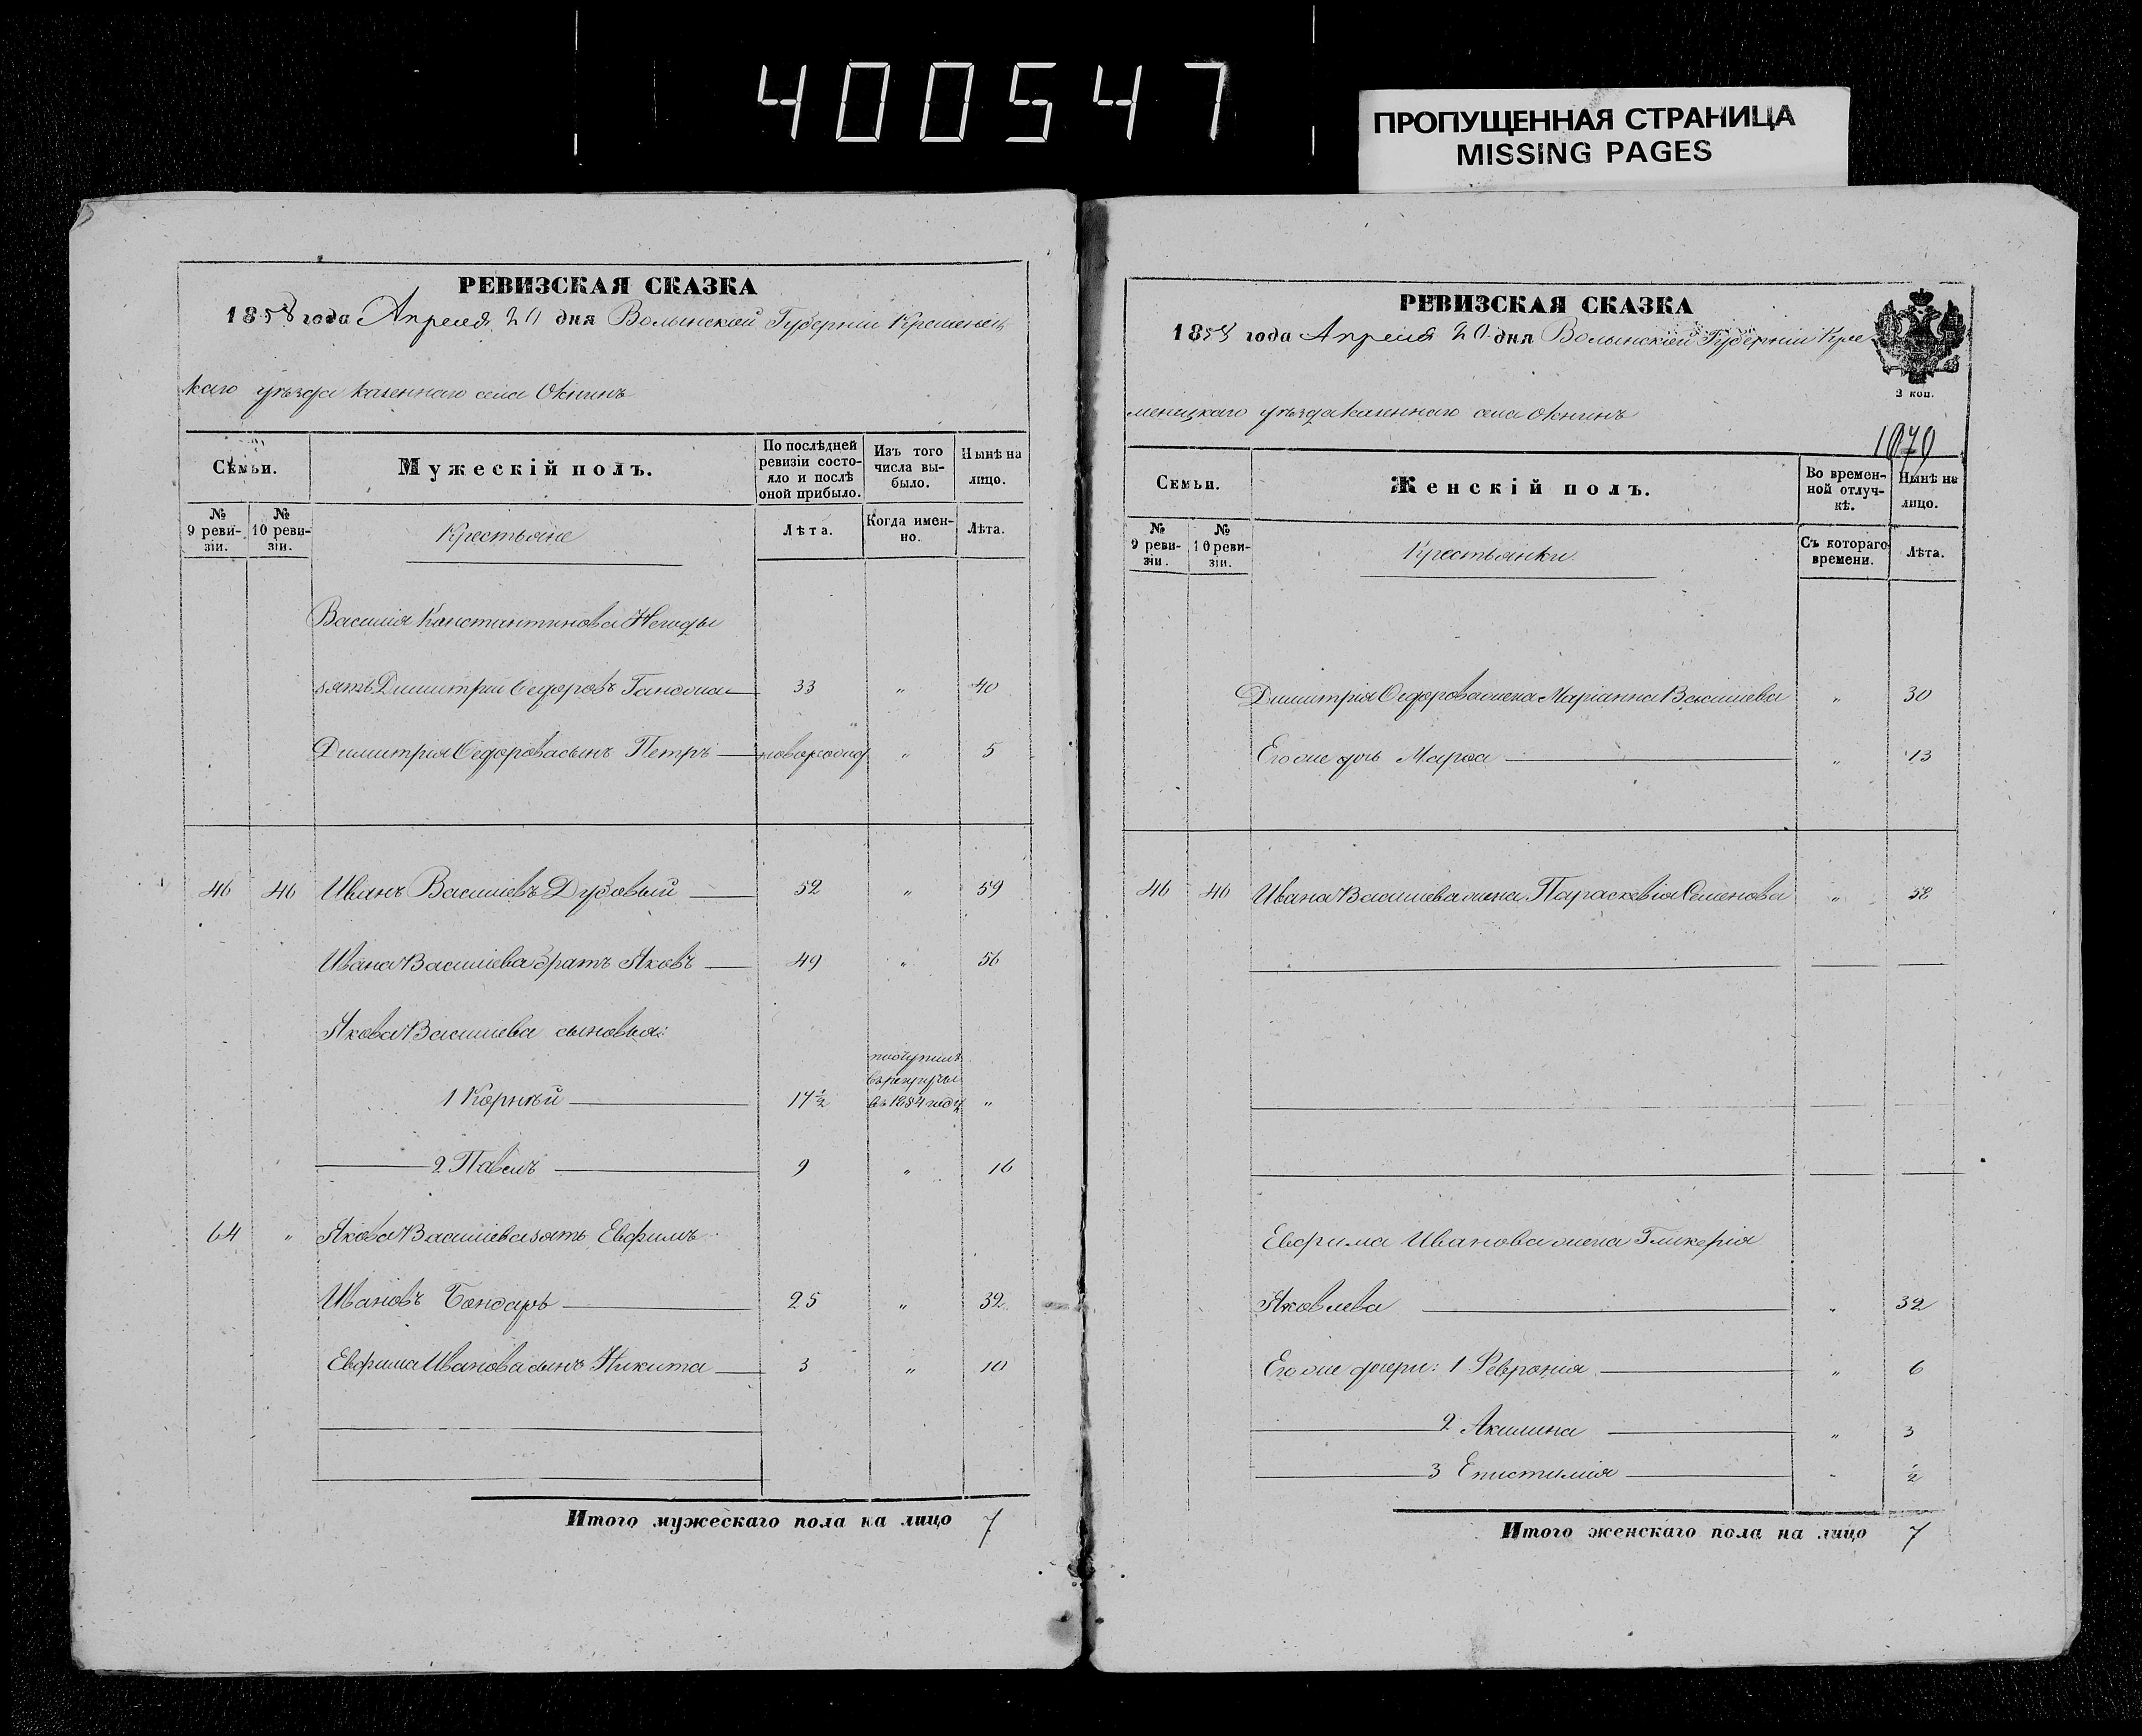 400547
ПРОПУЩЕННАЯ СТРАНИЦА
MISSING PAGES
РЕВИЗСКАЯ СКАЗКА
1858 года Апреля 20 дня Волынской Губернии Кременец
каго уѣзда казеннаго села Окнинъ
Семьи.
Мужескій полъ.
По послѣдней ревизіи состояло и послѣ оной прибыло.
Изъ того числа выбыло.
Нынѣ на лицо.
№ 9 ревизіи.
№ 10 ревизіи.
Крестьяне
Лѣта.
Когда именно.
Лѣта.
Василія Константинова Негоды
зять Димитрій Ѳедоровъ 33 " 40
Димитрія Ѳедорова сынъ Петръ новорожд " 5
46 46 Иванъ Василіевъ Дубовый 52 " 59
Ивана Василіева братъ Яковъ 49 " 56
Якова Василіева сыновья:
поступилъ
в рекруты
1 Корнѣй 17 1/2 въ 1854 году "
2 Павелъ 9 " 16
64 " Якова Василіева зять Евфимъ
Ивановъ Бондарь 25 " 32
Евфима Иванова сынъ Никита 3 " 10
Итого мужескаго пола на лицо 7
РЕВИЗСКАЯ СКАЗКА
1858 года Апреля 20 дня Волынской Губерніи Кре
3 коп.
менецкаго уѣзда казеннаго села Окнинъ
1070
Семьи.
Женскій полъ.
Во временной отлучкѣ.
Нынѣ на лицо.
№ 9 ревизіи.
№ 10 ревизіи.
Крестьянки
Съ котораго времени.
Лѣта.
Димитрія Ѳедорова жена Маріанна Василіева " 30
Его же дочь Марѳа " 13
46 46 Ивана Василіева жена Параскевія Семенова " 58
Евфима Иванова жена Гликерія
Яковлева " 32
Его же дочери: 1 Февронія " 6
2 Акилина " 3
3 Епистимія " 1/2
Итого женскаго пола на лицо 7